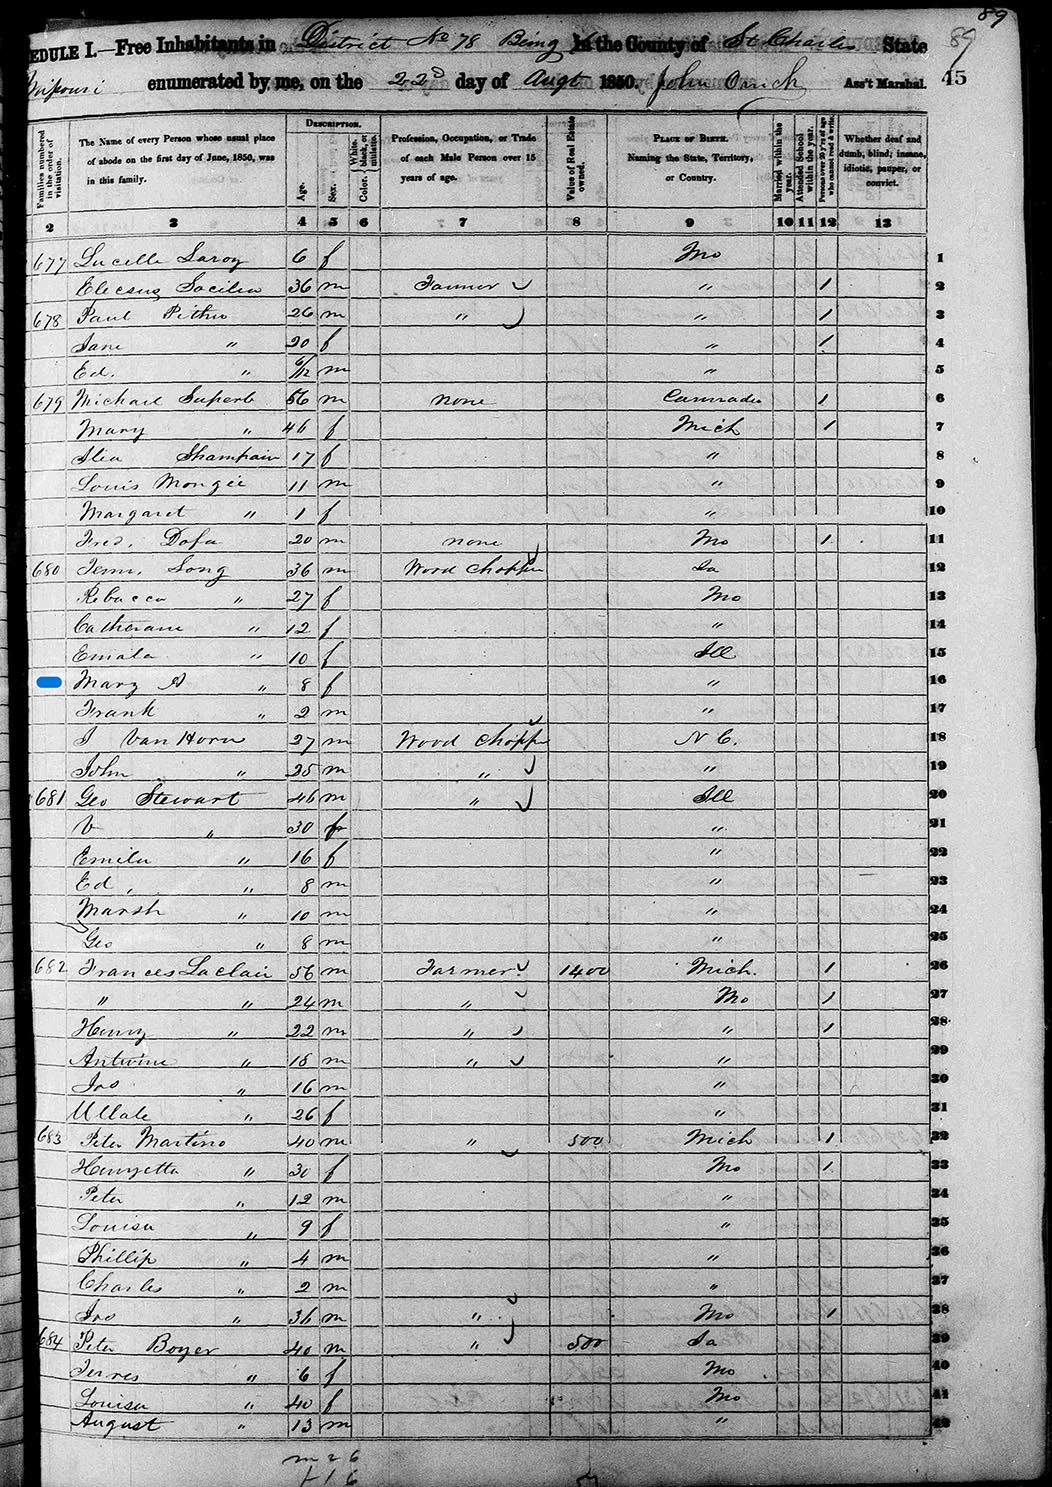 89
EDULE I.—Free Inhabitants in District No 78 Being in the County of St Charles State 89
enumerated by me, on the 22d day of Augt 1850. John Ass't Marshal. 45
Families numbered in the order of visitation.
The Name of every Person whose usual place of abode on the first day of June, 1850, was in this family.
Description.
Age.
Sex.
Color. White, black, or mulatto.
Profession, Occupation, or Trade of each Male Person over 15 years of age.
Value of Real Estate owned.
Place of Birth. Naming the State, Territory, or Country.
Married within the year.
Attended School within the year.
Persons over 20 y'rs of age who cannot read & write.
Whether deaf and dumb, blind, insane, idiotic, pauper, or convict.
2 3 4 5 6 7 8 9 10 11 12 13
677 Lucelle Laroy 6 f Mo 1
36 m Farmer " 1 2
678 Paul 26 m " " 1 3
Jane " 20 f " 1 4
Ed. " 6/12 m " 5
679 Michael Superb 56 m none Cannada 1 6
Mary " 46 f Mich 1 7
Shampain 17 f " 8
Louis Mongee 11 m " 9
Margaret " 1 f " 10
Fred. Dofa 20 m none Mo 1 11
680 Long 36 m Wood Chopper 12
Rebacca " 27 f Mo 13
Catherane " 12 f " 14
Emala " 10 f Ill 15
Mary A " 8 f " 16
Frank " 2 m " 17
J Van Horn 27 m Wood Chopp N C. 18
John " 25 m " " 19
681 Geo Stewart 46 m " Ill 20
V " 30 f " 21
Emila " 16 f " 22
Ed, " 8 m " 23
Marsh " 10 m " 24
Geo " 8 m " 25
682 Frances Laclair 56 m Farmer 1400 Mich. 1 26
" " 24 m " Mo 1 27
Henry " 22 m " " 1 28
Antwine " 18 m " " 29
Jos " 16 m " 30
Ullale " 26 f " 31
683 Peter Martino 40 m " 500 Mich 1 32
Henryetta " 30 f Mo 1 33
Peter " 12 m " 34
Louisa " 9 f " 35
Phillip " 4 m " 36
Charles " 2 m " 37
Jos " 36 m " Mo 1 38
684 Peter Boyer 40 m " 500 39
" 6 f Mo 40
Louisa " 40 f Mo 41
August " 13 m " 42
m 26
f 16